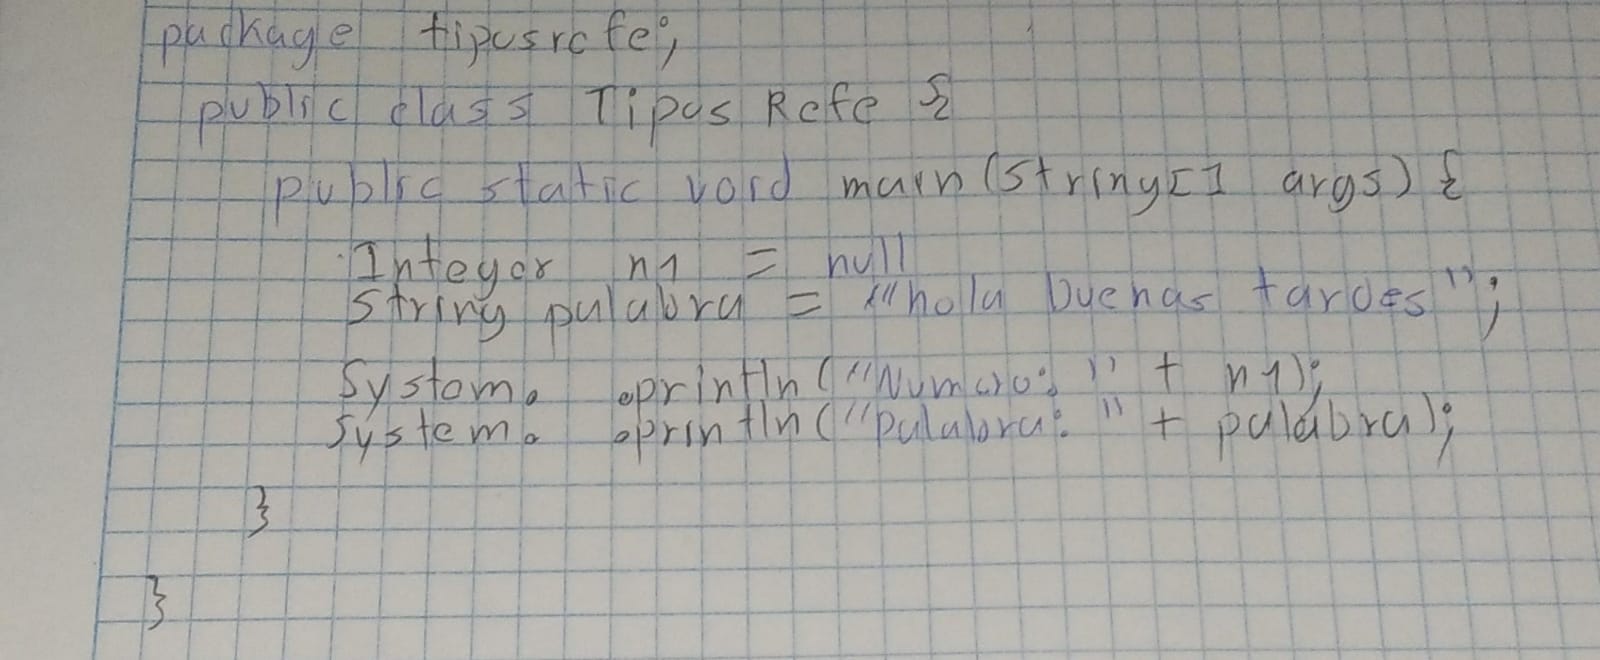 package tiposrefe;
public class Tipos Refe {
public static void main(string[] args) {
Integer n1 = null
string palabra = "hola buenas tardes";
System. .println("Numero: " + n1);
System. .println("palabra: " + palabra);
}
}